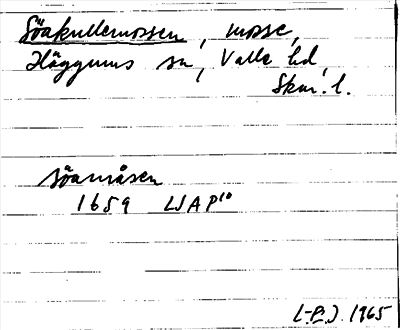 Söakullemossen, mosse,
Häggums sn, Valle hd,
Skar. l.
Söamåsen
1659 LSAP¹⁰
L-E.J. 1965